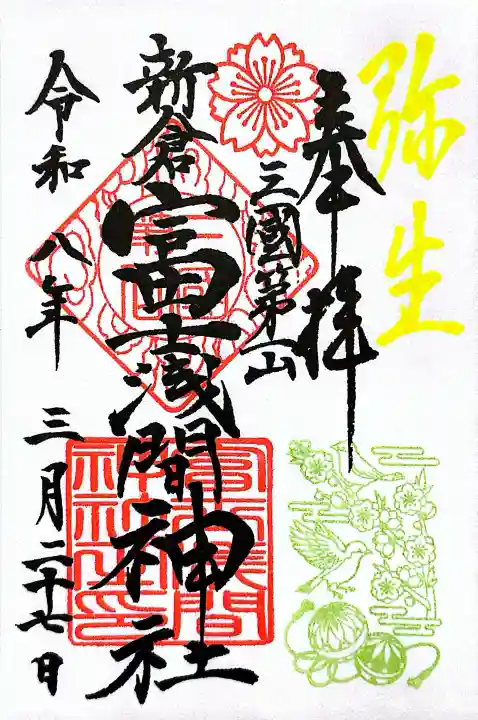 弥生
奉拝
三國第一山
新倉富士浅間神社
令和八年三月二十七日
冨士浅間神社之印